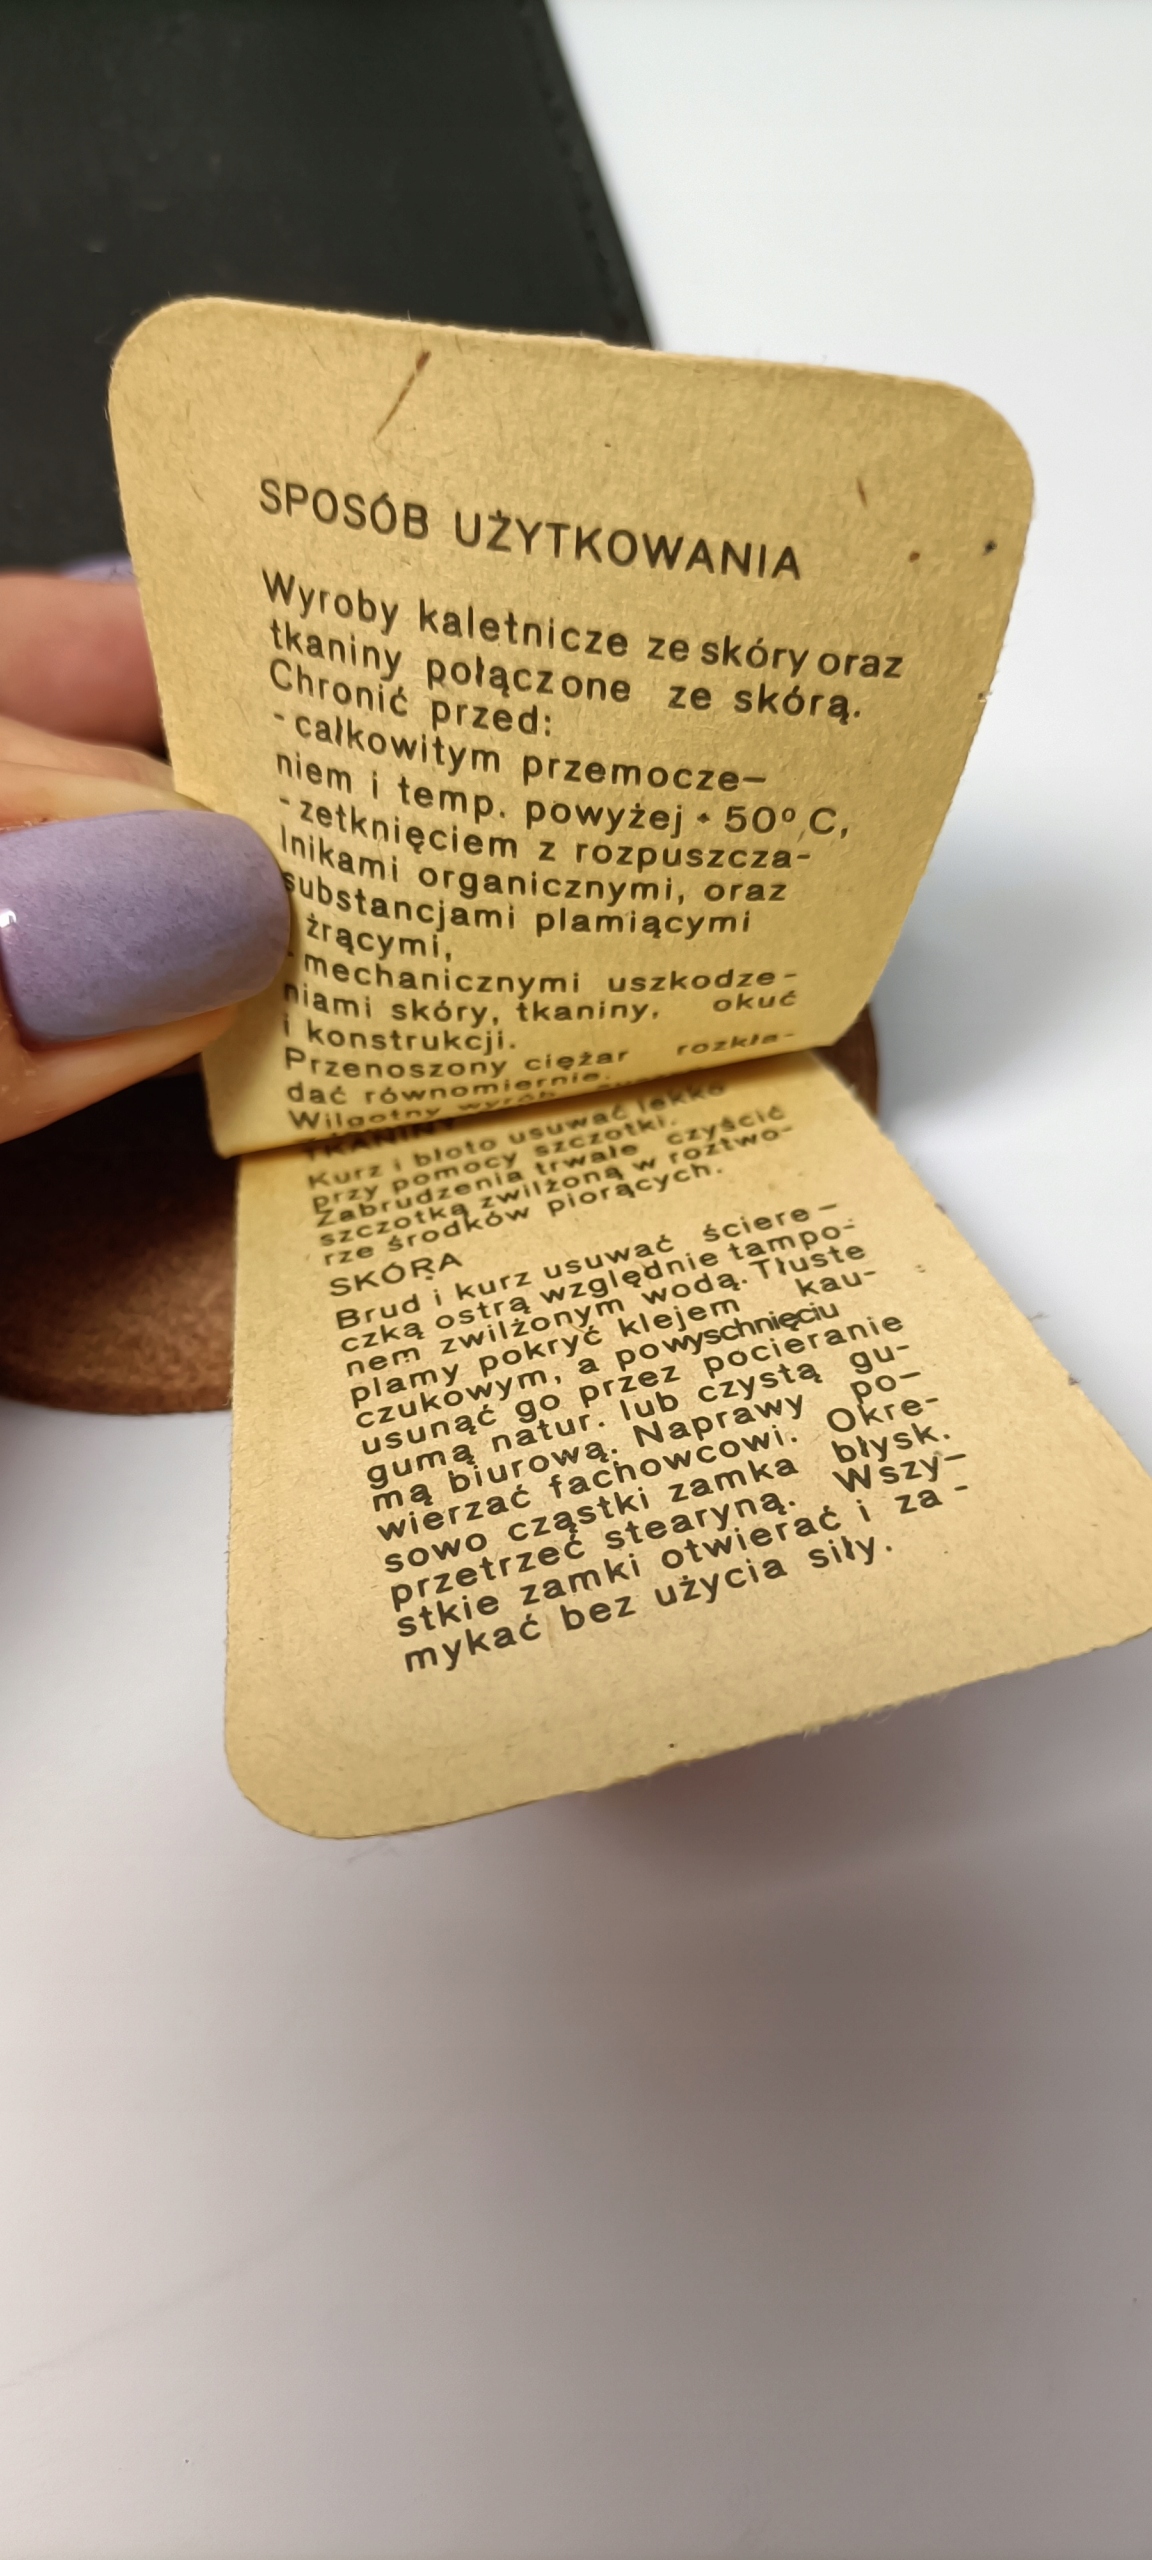 SPOSÓB UŻYTKOWANIA
Wyroby kaletnicze ze skóry oraz
tkaniny połączone ze skórą.
Chronić przed:
- całkowitym przemocze-
niem i temp. powyżej + 50° C,
- zetknięciem z rozpuszcza-
lnikami organicznymi, oraz
substancjami plamiącymi
żrącymi,
- mechanicznymi uszkodze-
niami skóry, tkaniny, okuć
i konstrukcji.
Przenoszony ciężar rozkła-
dać równomiernie.
Wilgotny wyrób
TKANINY
Kurz i błoto usuwać lekko
przy pomocy szczotki.
Zabrudzenia trwałe czyścić
szczotką zwilżoną w roztwo-
rze środków piorących.
SKÓRA
Brud i kurz usuwać ściere-
czką ostrą względnie tampo-
nem zwilżonym wodą. Tłuste
plamy pokryć klejem kau-
czukowym, a powyschnięciu
usunąć go przez pocieranie
gumą natur. lub czystą gu-
mą biurową. Naprawy po-
wierzać fachowcowi. Okre-
sowo cząstki zamka błysk.
przetrzeć stearyną. Wszy-
stkie zamki otwierać i za-
mykać bez użycia siły.